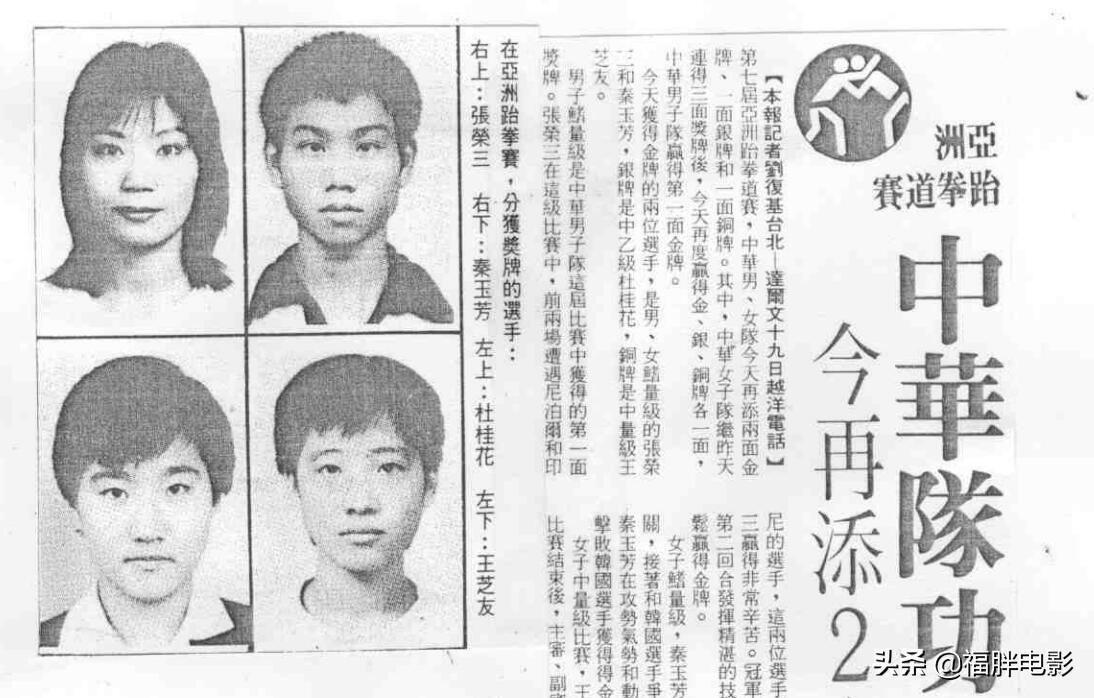 亞洲
跆拳道賽
中華隊功
今再添2
【本報記者劉復基台北—達爾文十九日越洋電話】
第七屆亞洲跆拳道賽，中華男、女隊今天再添兩面金
牌、一面銀牌和一面銅牌。其中，中華女子隊繼昨天
連得三面獎牌後，今天再度贏得金、銀、銅牌各一面，
中華男子隊贏得第一面金牌。
今天獲得金牌的兩位選手，是男、女鰭量級的張榮
三和秦玉芳，銀牌是中乙級杜桂花，銅牌是中量級王
芝友。
男子鰭量級是中華男子隊這屆比賽中獲得的第一面
獎牌。張榮三在這級比賽中，前兩場遭遇尼泊爾和印
尼的選手，這兩位選手
三贏得非常辛苦。冠軍
第二回合發揮精湛的技
鬆贏得金牌。
女子鰭量級，秦玉芳
關，接著和韓國選手爭
秦玉芳在攻勢氣勢和動
擊敗韓國選手獲得金
女子中量級比賽，王
比賽結束後，主審、副
在亞洲跆拳賽，分獲獎牌的選手：
右上：張榮三　右下：秦玉芳　左上：杜桂花　左下：王芝友
头条 @福胖电影